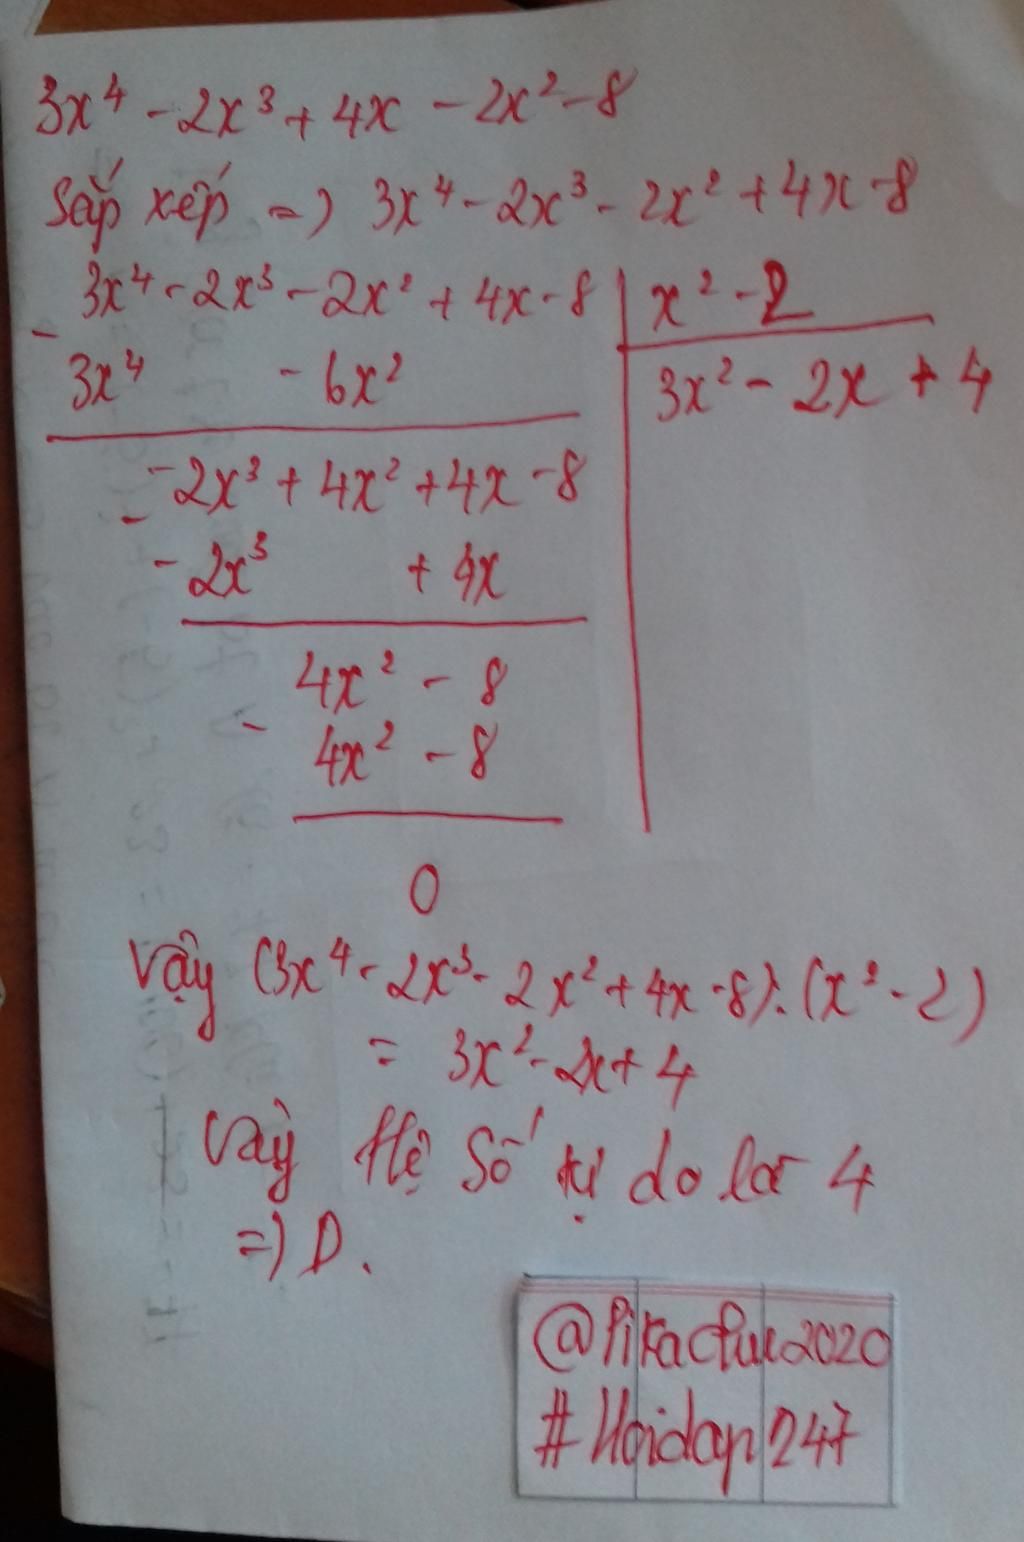 3x⁴ - 2x³ + 4x - 2x² - 8
Sắp xếp => 3x⁴ - 2x³ - 2x² + 4x - 8
3x⁴ - 2x³ - 2x² + 4x - 8 | x² - 2
- 3x⁴ - 6x² | 3x² - 2x + 4
-2x³ + 4x² + 4x - 8
- -2x³ + 4x
4x² - 8
- 4x² - 8
0
Vậy (3x⁴ - 2x³ - 2x² + 4x - 8) : (x² - 2)
= 3x² - 2x + 4
Vậy Hệ Số tự do là 4
=) D.
@Pikachu2020
#Hoidap247